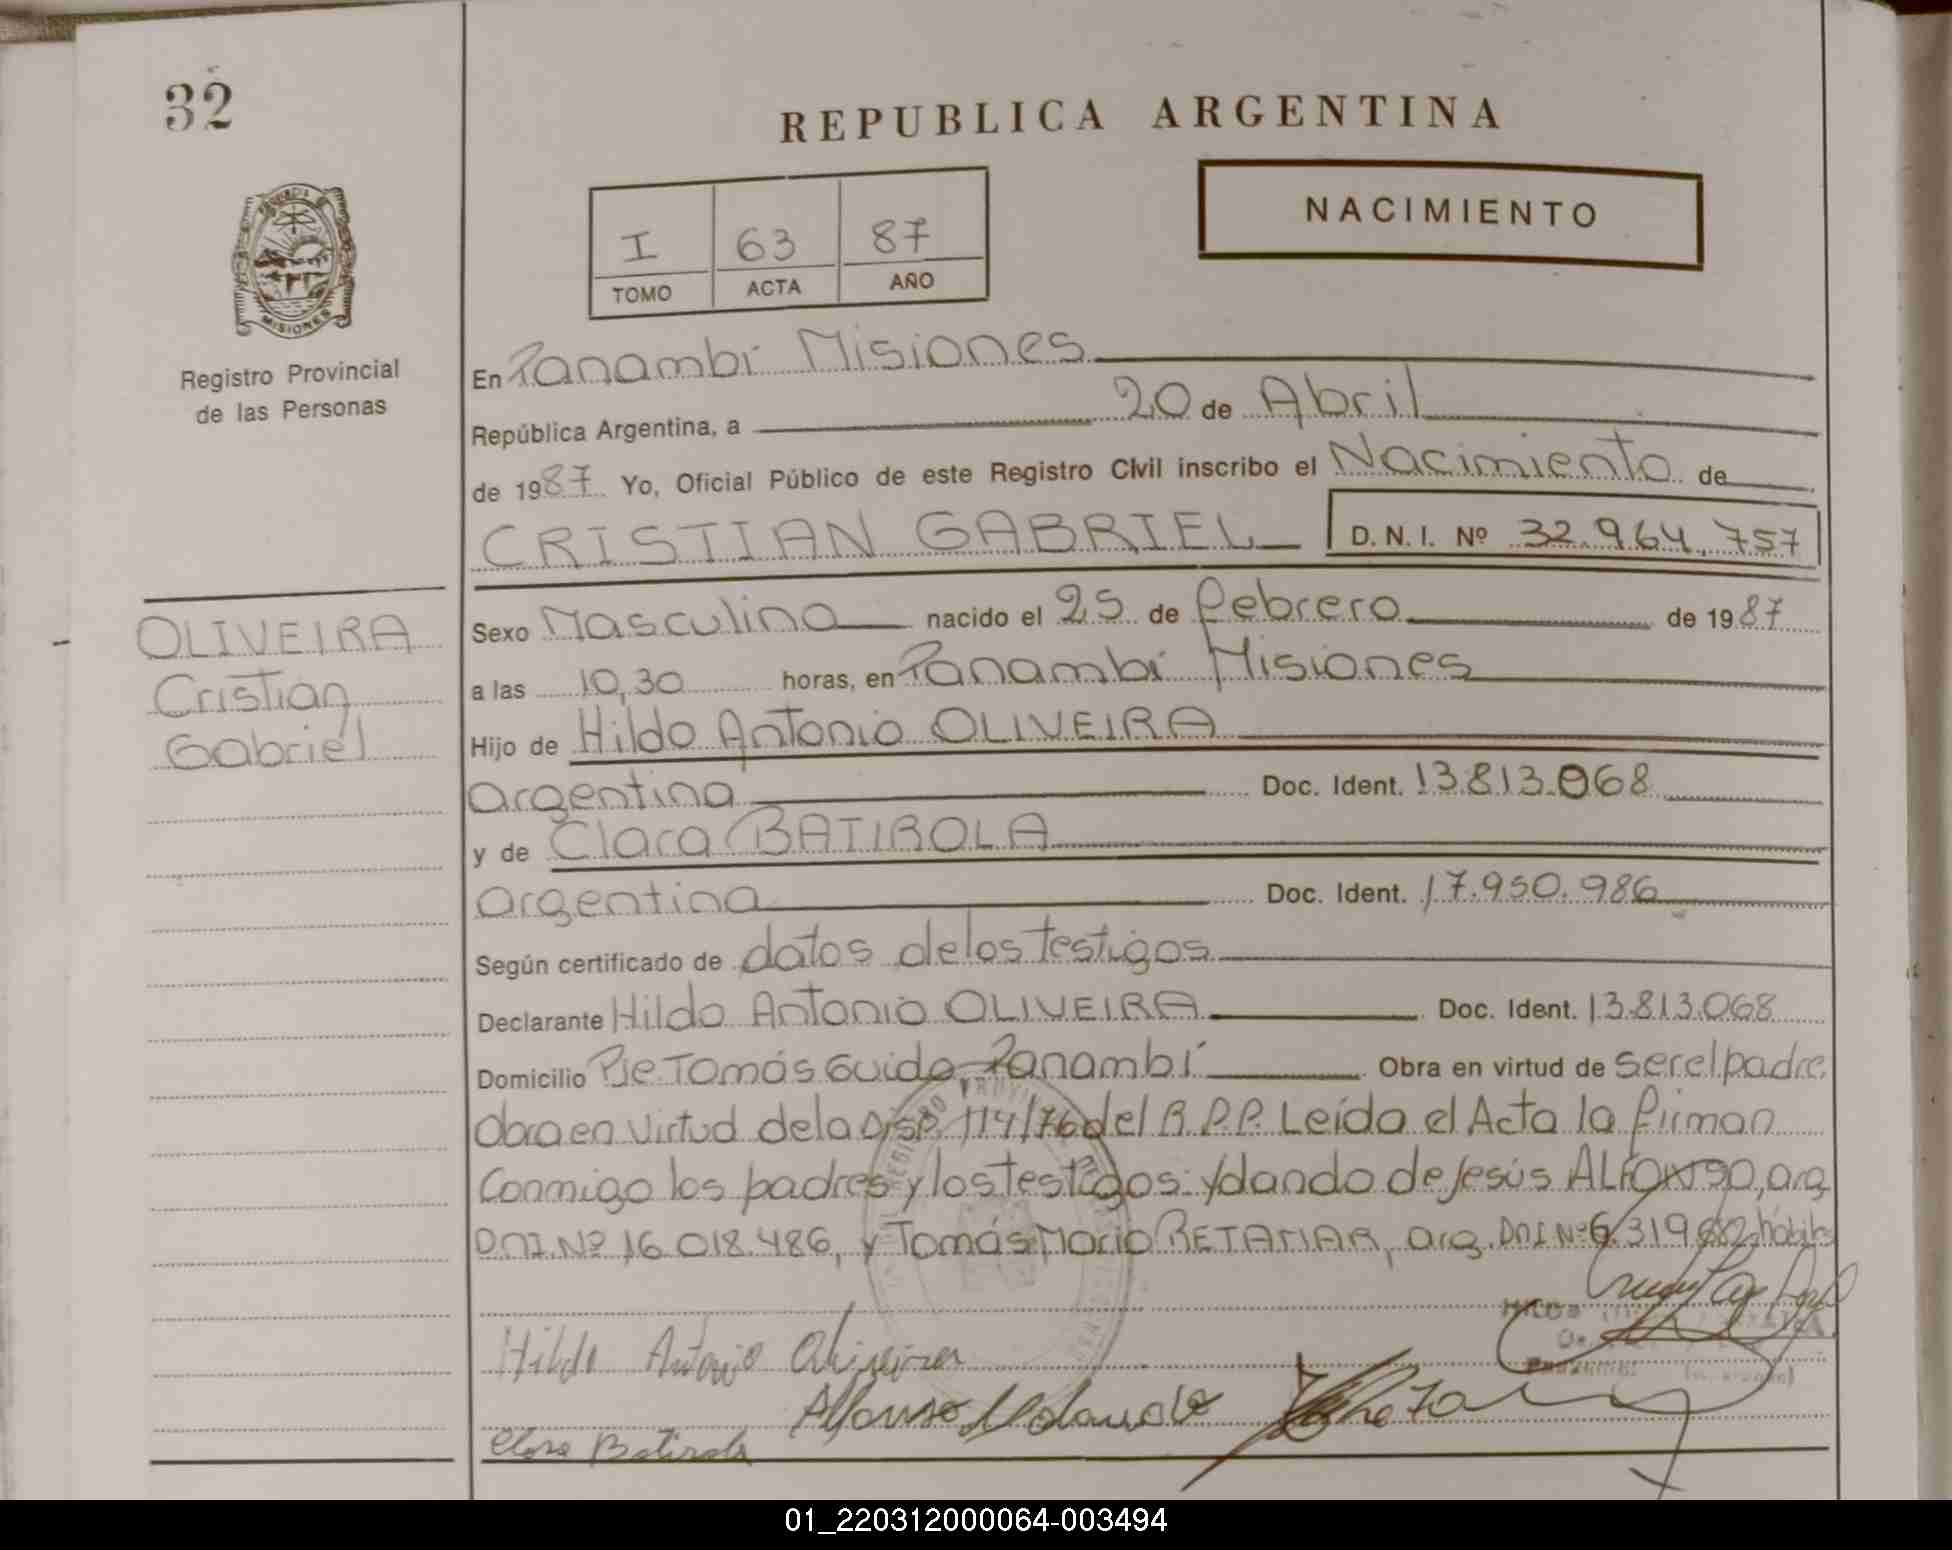 32
REPUBLICA ARGENTINA
PROVINCIA DE
MISIONES
I 63 87
TOMO ACTA AÑO
NACIMIENTO
Registro Provincial
de las Personas
En Panambí Misiones
República Argentina, a 20 de Abril
de 1987 Yo, Oficial Público de este Registro Civil inscribo el Nacimiento de
CRISTIAN GABRIEL D. N. I. Nº 32.964.757
OLIVEIRA
Cristian
Gabriel
Sexo Masculino nacido el 25 de febrero de 1987
a las 10,30 horas, en Panambí Misiones
Hijo de Hildo Antonio OLIVEIRA
argentino Doc. Ident. 13.813.068
y de Clara BATIROLA
argentina Doc. Ident. 17.950.986
Según certificado de datos de los testigos
Declarante Hildo Antonio OLIVEIRA Doc. Ident. 13.813.068
Domicilio Pje Tomás Guido, Panambí Obra en virtud de ser el padre
Obra en virtud de la Disp. 114/76 del R.P.P. Leída el Acta la firman
Conmigo los padres y los testigos: Ydando de Jesús ALFONSO, arg
DNI.Nº 16.018.486, y Tomás Mario BETAMAR, arg. DNI Nº 6.319.682, hábiles
Hildo Antonio Oliveira
Alfonso
Clara Batirola
01_220312000064-003494